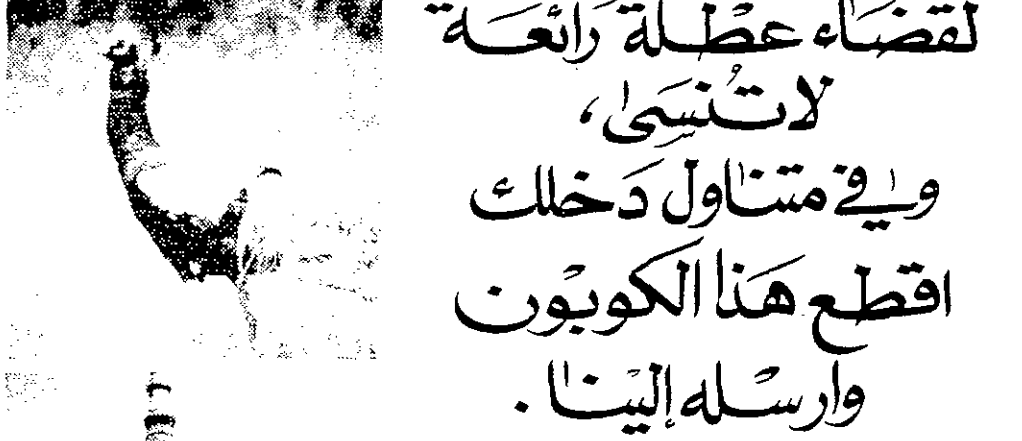 لقضاء عطلة رائعة
لا تنسى،
وفي متناول دخلك
اقطع هذا الكوبون
وارسله إلينا .